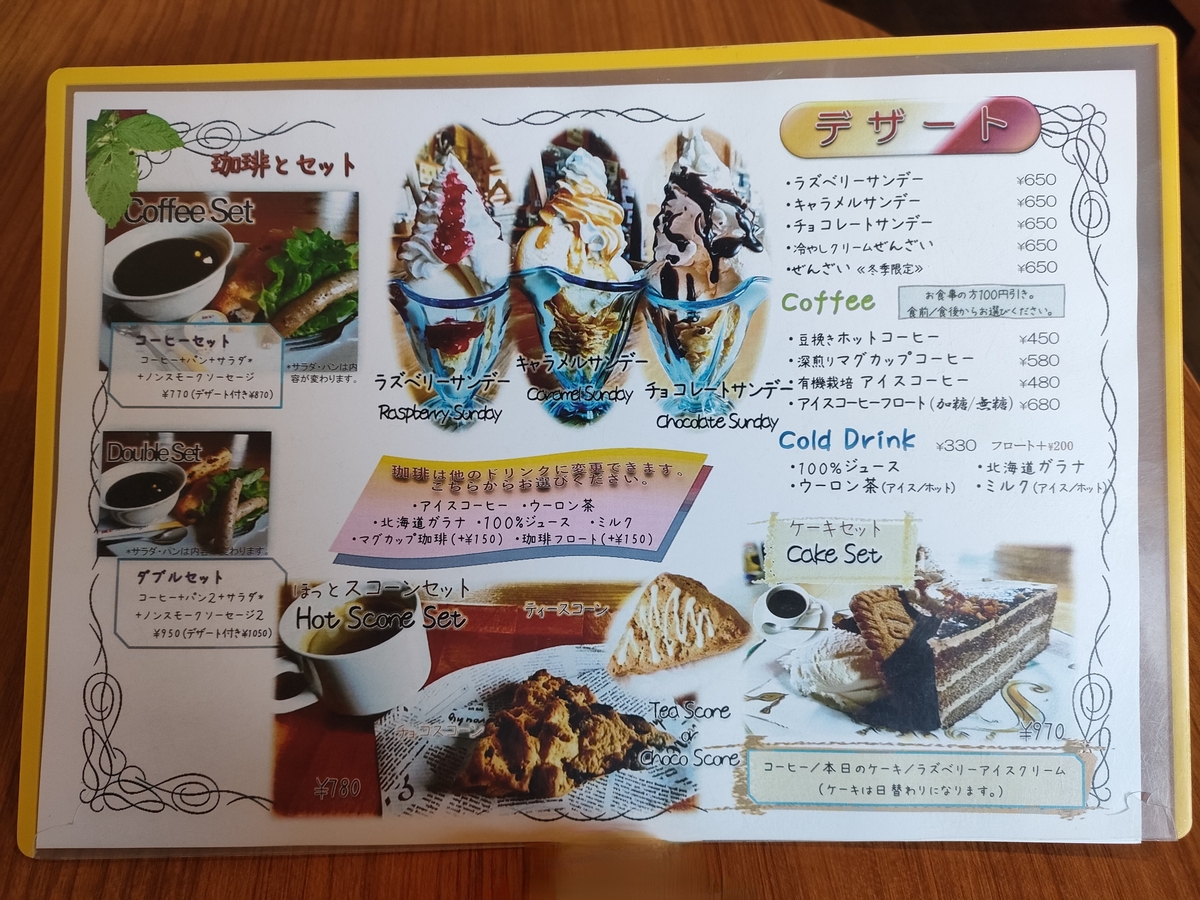 珈琲とセット
Coffee Set
コーヒーセット
コーヒー+パン+サラダ*
+ノンスモークソーセージ
¥770(デザート付き¥870)
*サラダ・パンは内
容が変わります。
Double Set
*サラダ・パンは内容が変わります。
ダブルセット
コーヒー+パン2+サラダ*
+ノンスモークソーセージ2
¥950(デザート付き¥1050)
ラズベリーサンデー
Raspberry Sunday
キャラメルサンデー
Caramel Sunday
チョコレートサンデー
Chocolate Sunday
珈琲は他のドリンクに変更できます。
こちらからお選びください。
・アイスコーヒー ・ウーロン茶
・北海道ガラナ ・100%ジュース ・ミルク
・マグカップ珈琲(+¥150) ・珈琲フロート(+¥150)
ほっとスコーンセット
Hot Scone Set
ティースコーン
チョコスコーン
Tea Scone
or
Choco Scone
¥780
デザート
・ラズベリーサンデー ¥650
・キャラメルサンデー ¥650
・チョコレートサンデー ¥650
・冷やしクリームぜんざい ¥650
・ぜんざい≪冬季限定≫ ¥650
Coffee
お食事の方100円引き。
食前/食後からお選びください。
・豆挽きホットコーヒー ¥450
・深煎りマグカップコーヒー ¥580
・有機栽培 アイスコーヒー ¥480
・アイスコーヒーフロート(加糖/無糖) ¥680
Cold Drink ¥330 フロート+¥200
・100%ジュース ・北海道ガラナ
・ウーロン茶(アイス/ホット) ・ミルク(アイス/ホット)
ケーキセット
Cake Set
¥970
コーヒー/本日のケーキ/ラズベリーアイスクリーム
(ケーキは日替わりになります。)